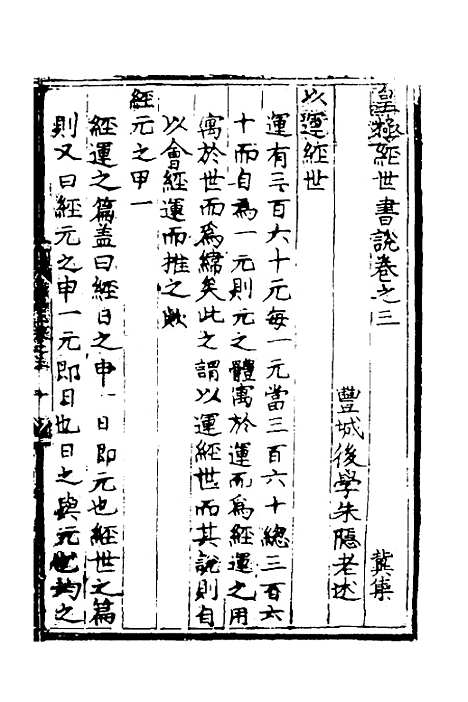 皇極經世書說卷之三
豐城後學朱隱老述
以運經世
運有三百六十元每一元當三百六十總三百六
十而自為一元則元之體寓於運而為經運之用
寓於世而為緯矣此之謂以運經世而其說則自
以會經運而推之歟
經元之甲一
經運之篇盖曰經日之申一日即元也經世之篇
則又曰經元之申一元即日也日之與元也均之